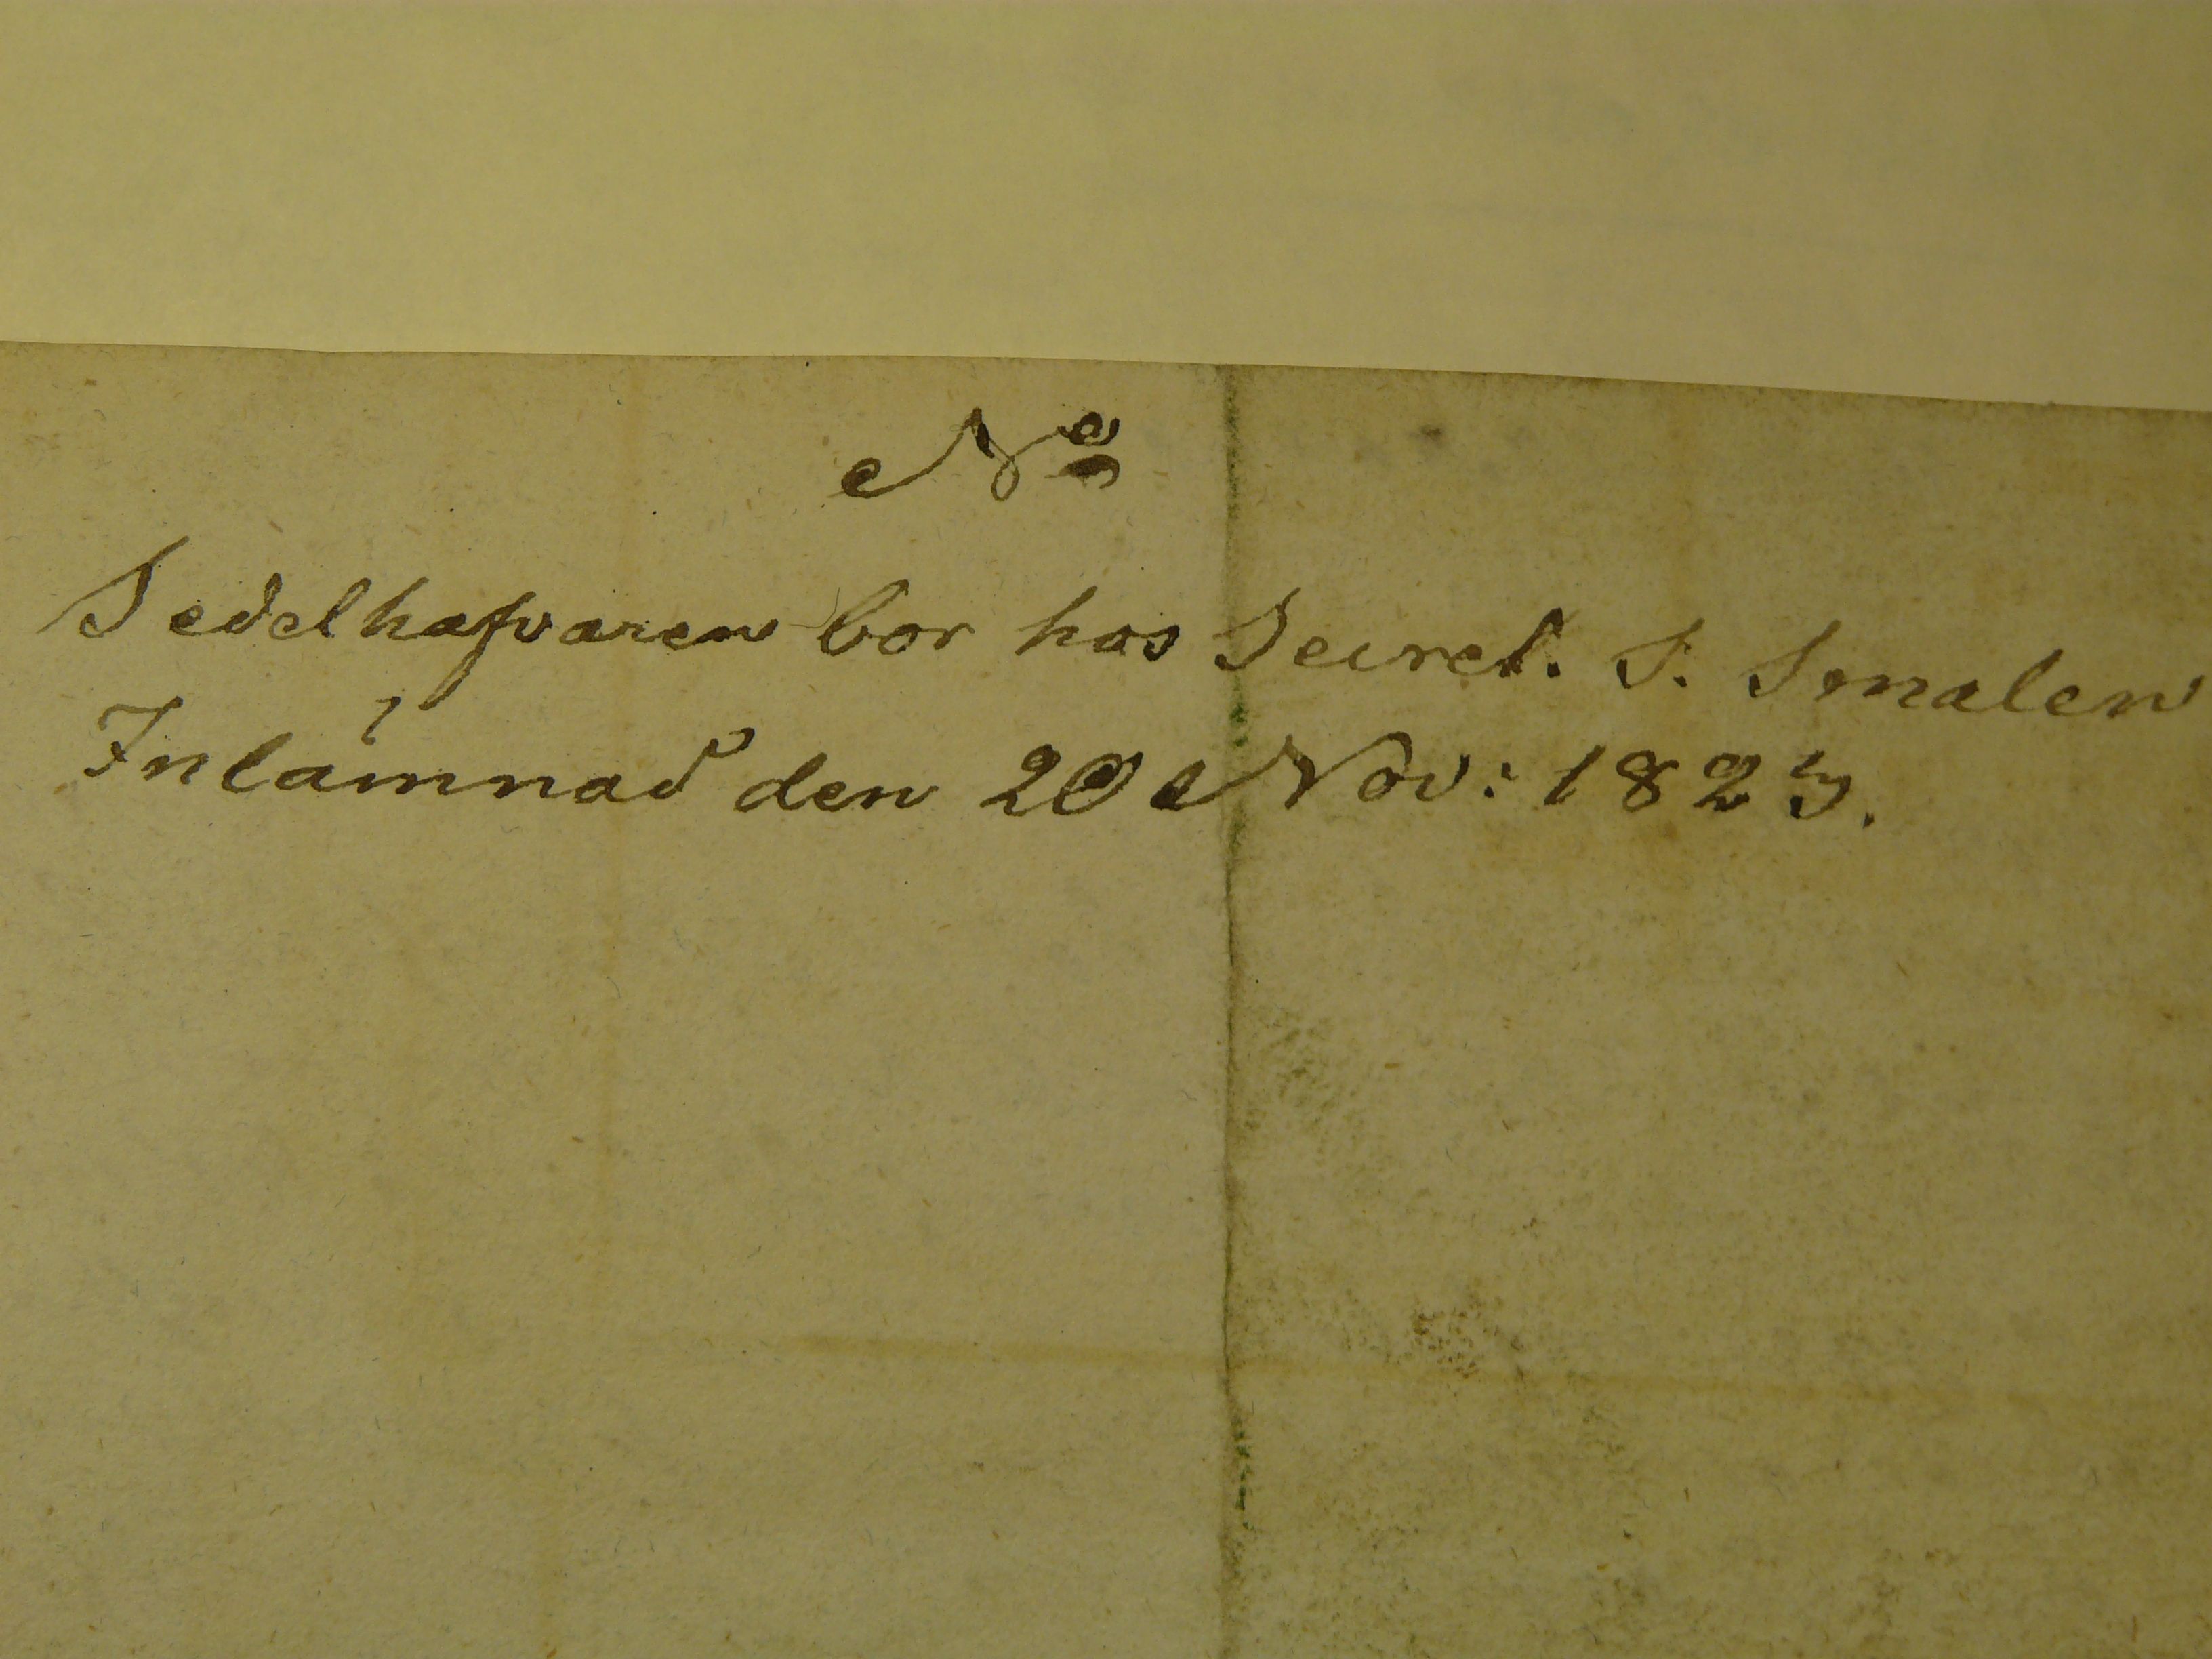 No
Sedelhafvaren bor hos Secret. S. Smalen
Inlämnad den 20 Nov: 1825.